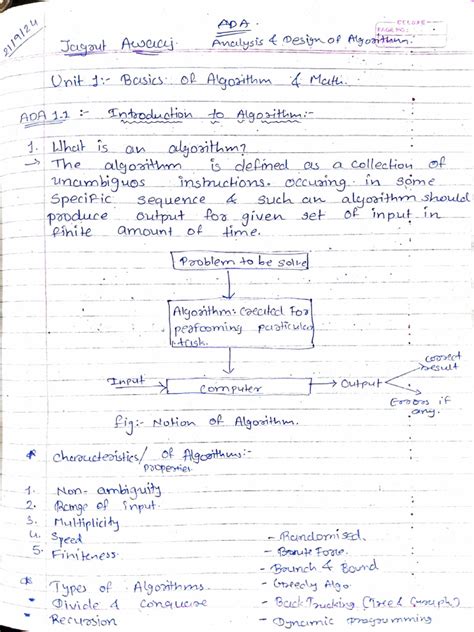 21/9/24
ADA.
PAGE NO.:
Jagrut Awaaj. Analysis & Design of Algorithm.
Unit 1:- Basics of Algorithm & Math.
ADA 1.1 :- Introduction to Algorithm:-
1. What is an algorithm?
→ The algorithm is defined as a collection of
unambiguos instructions. occuring in some
specific sequence & such an algorithm should
produce output for given set of input in
finite amount of time.
Problem to be solve
Algorithm: created For
performing particular
task.
Input → computer → output
correct result
Errors if any.
fig:- Notion of Algorithm.
* characteristics/properties of Algorithms:-
1. Non-ambiguity
2. Range of input.
3. Multiplicity
4. Speed
5. Finiteness.
* Types of Algorithms.
• Divide & Conquere
• Recursion
- Randomised.
- Brute Force.
- Branch & Bound
- Greedy Algo.
- Back Trucking (Tree & Guraph)
- Dynamic programming